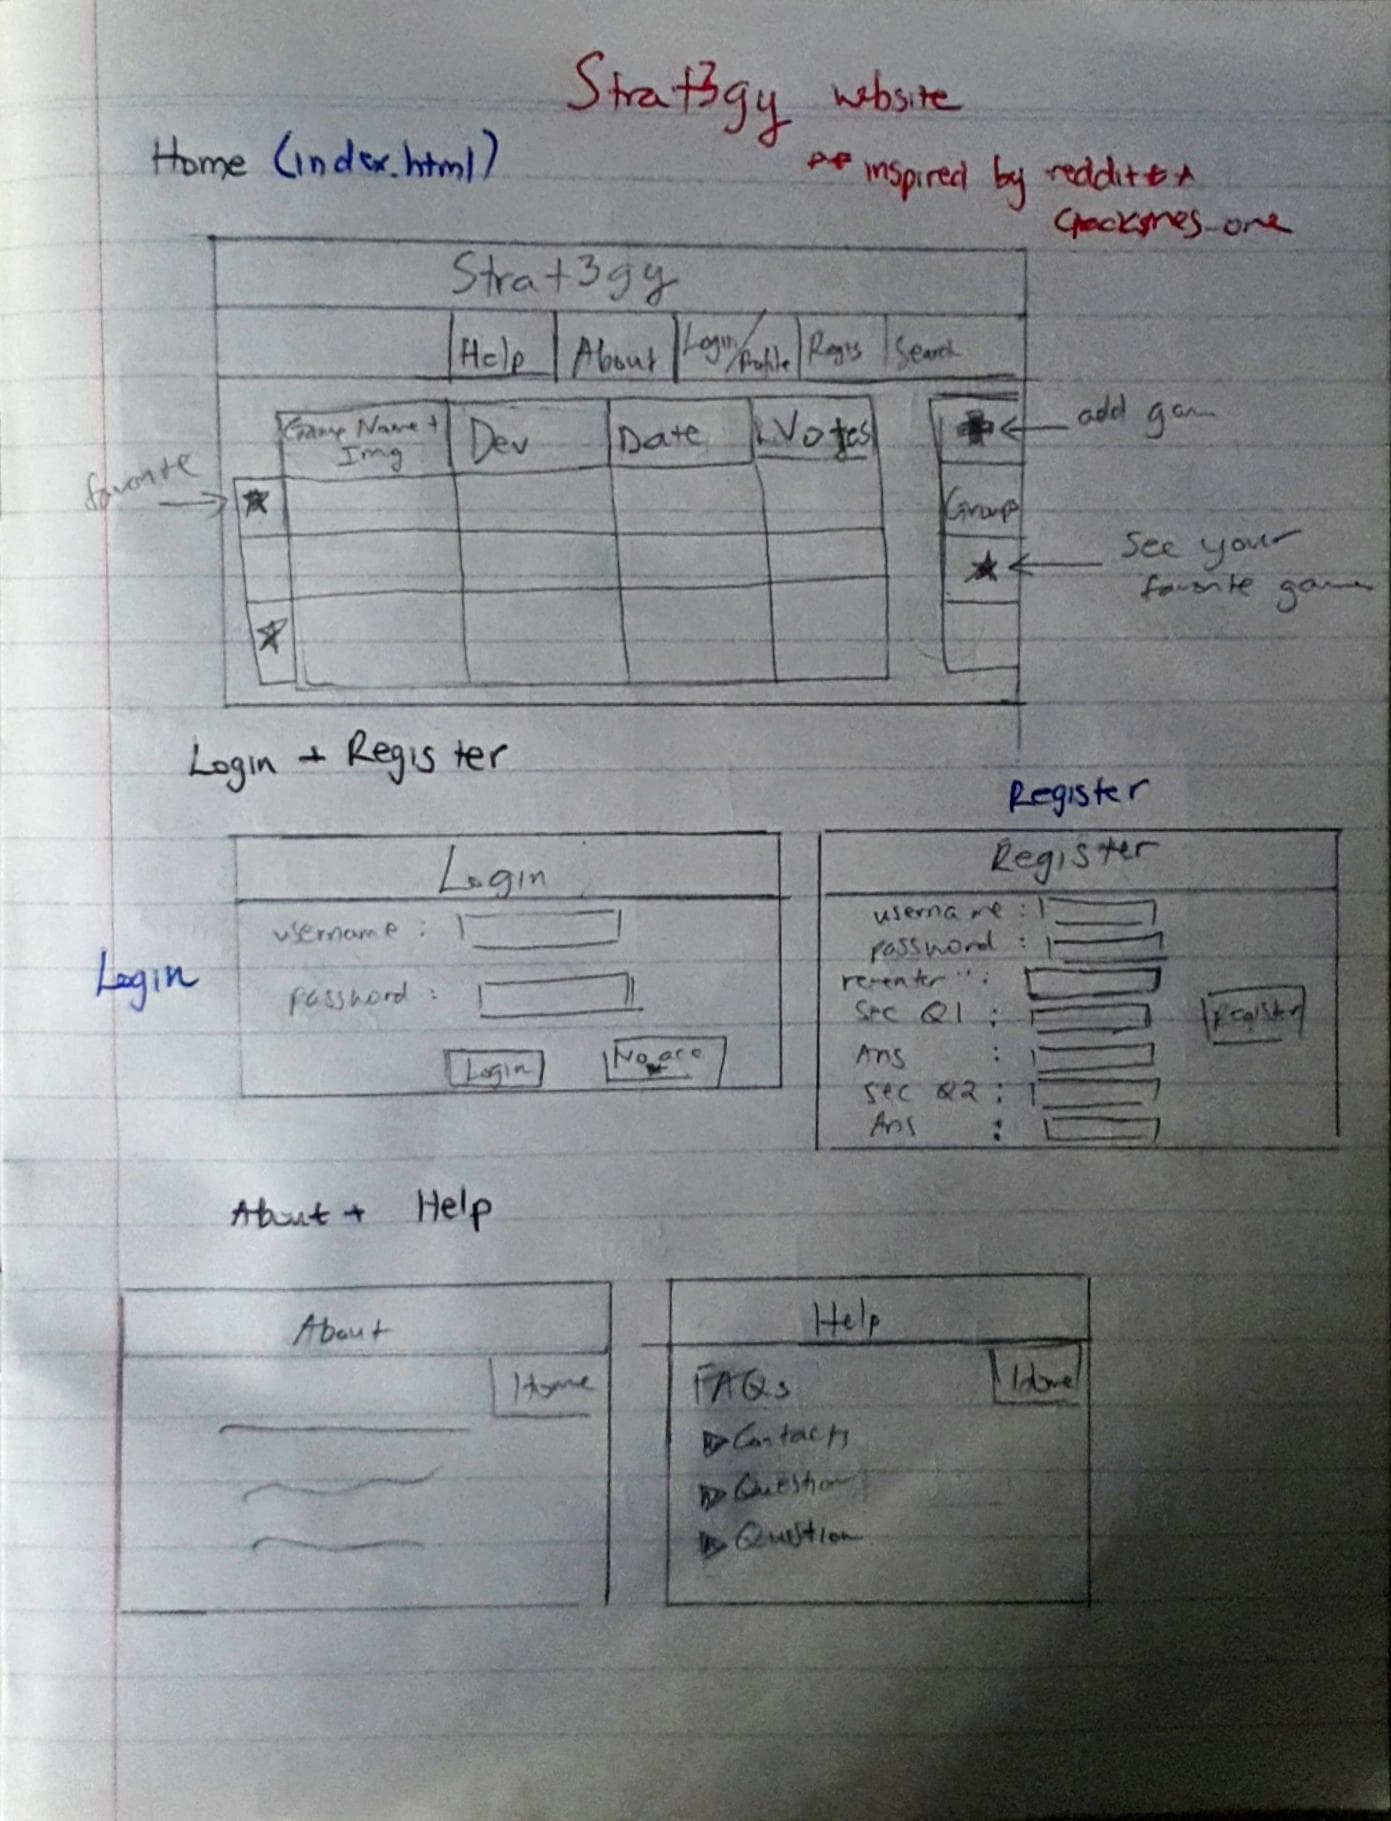 Strat3gy website
Home (index.html)
** inspired by reddit +
crackmes.one
Strat3gy
Help About Login/Profile Regis Search
Game Name + Img Dev Date Votes
add game
favorite
Groups
See your
favorite game
Login + Register
Register
Login
username :
password :
Login No acc
Login
Register
username :
password :
reenter " :
Sec Q1 :
Register
Ans :
Sec Q2 :
Ans :
About + Help
About
Home
Help
FAQs
Home
Contacts
Question
Question